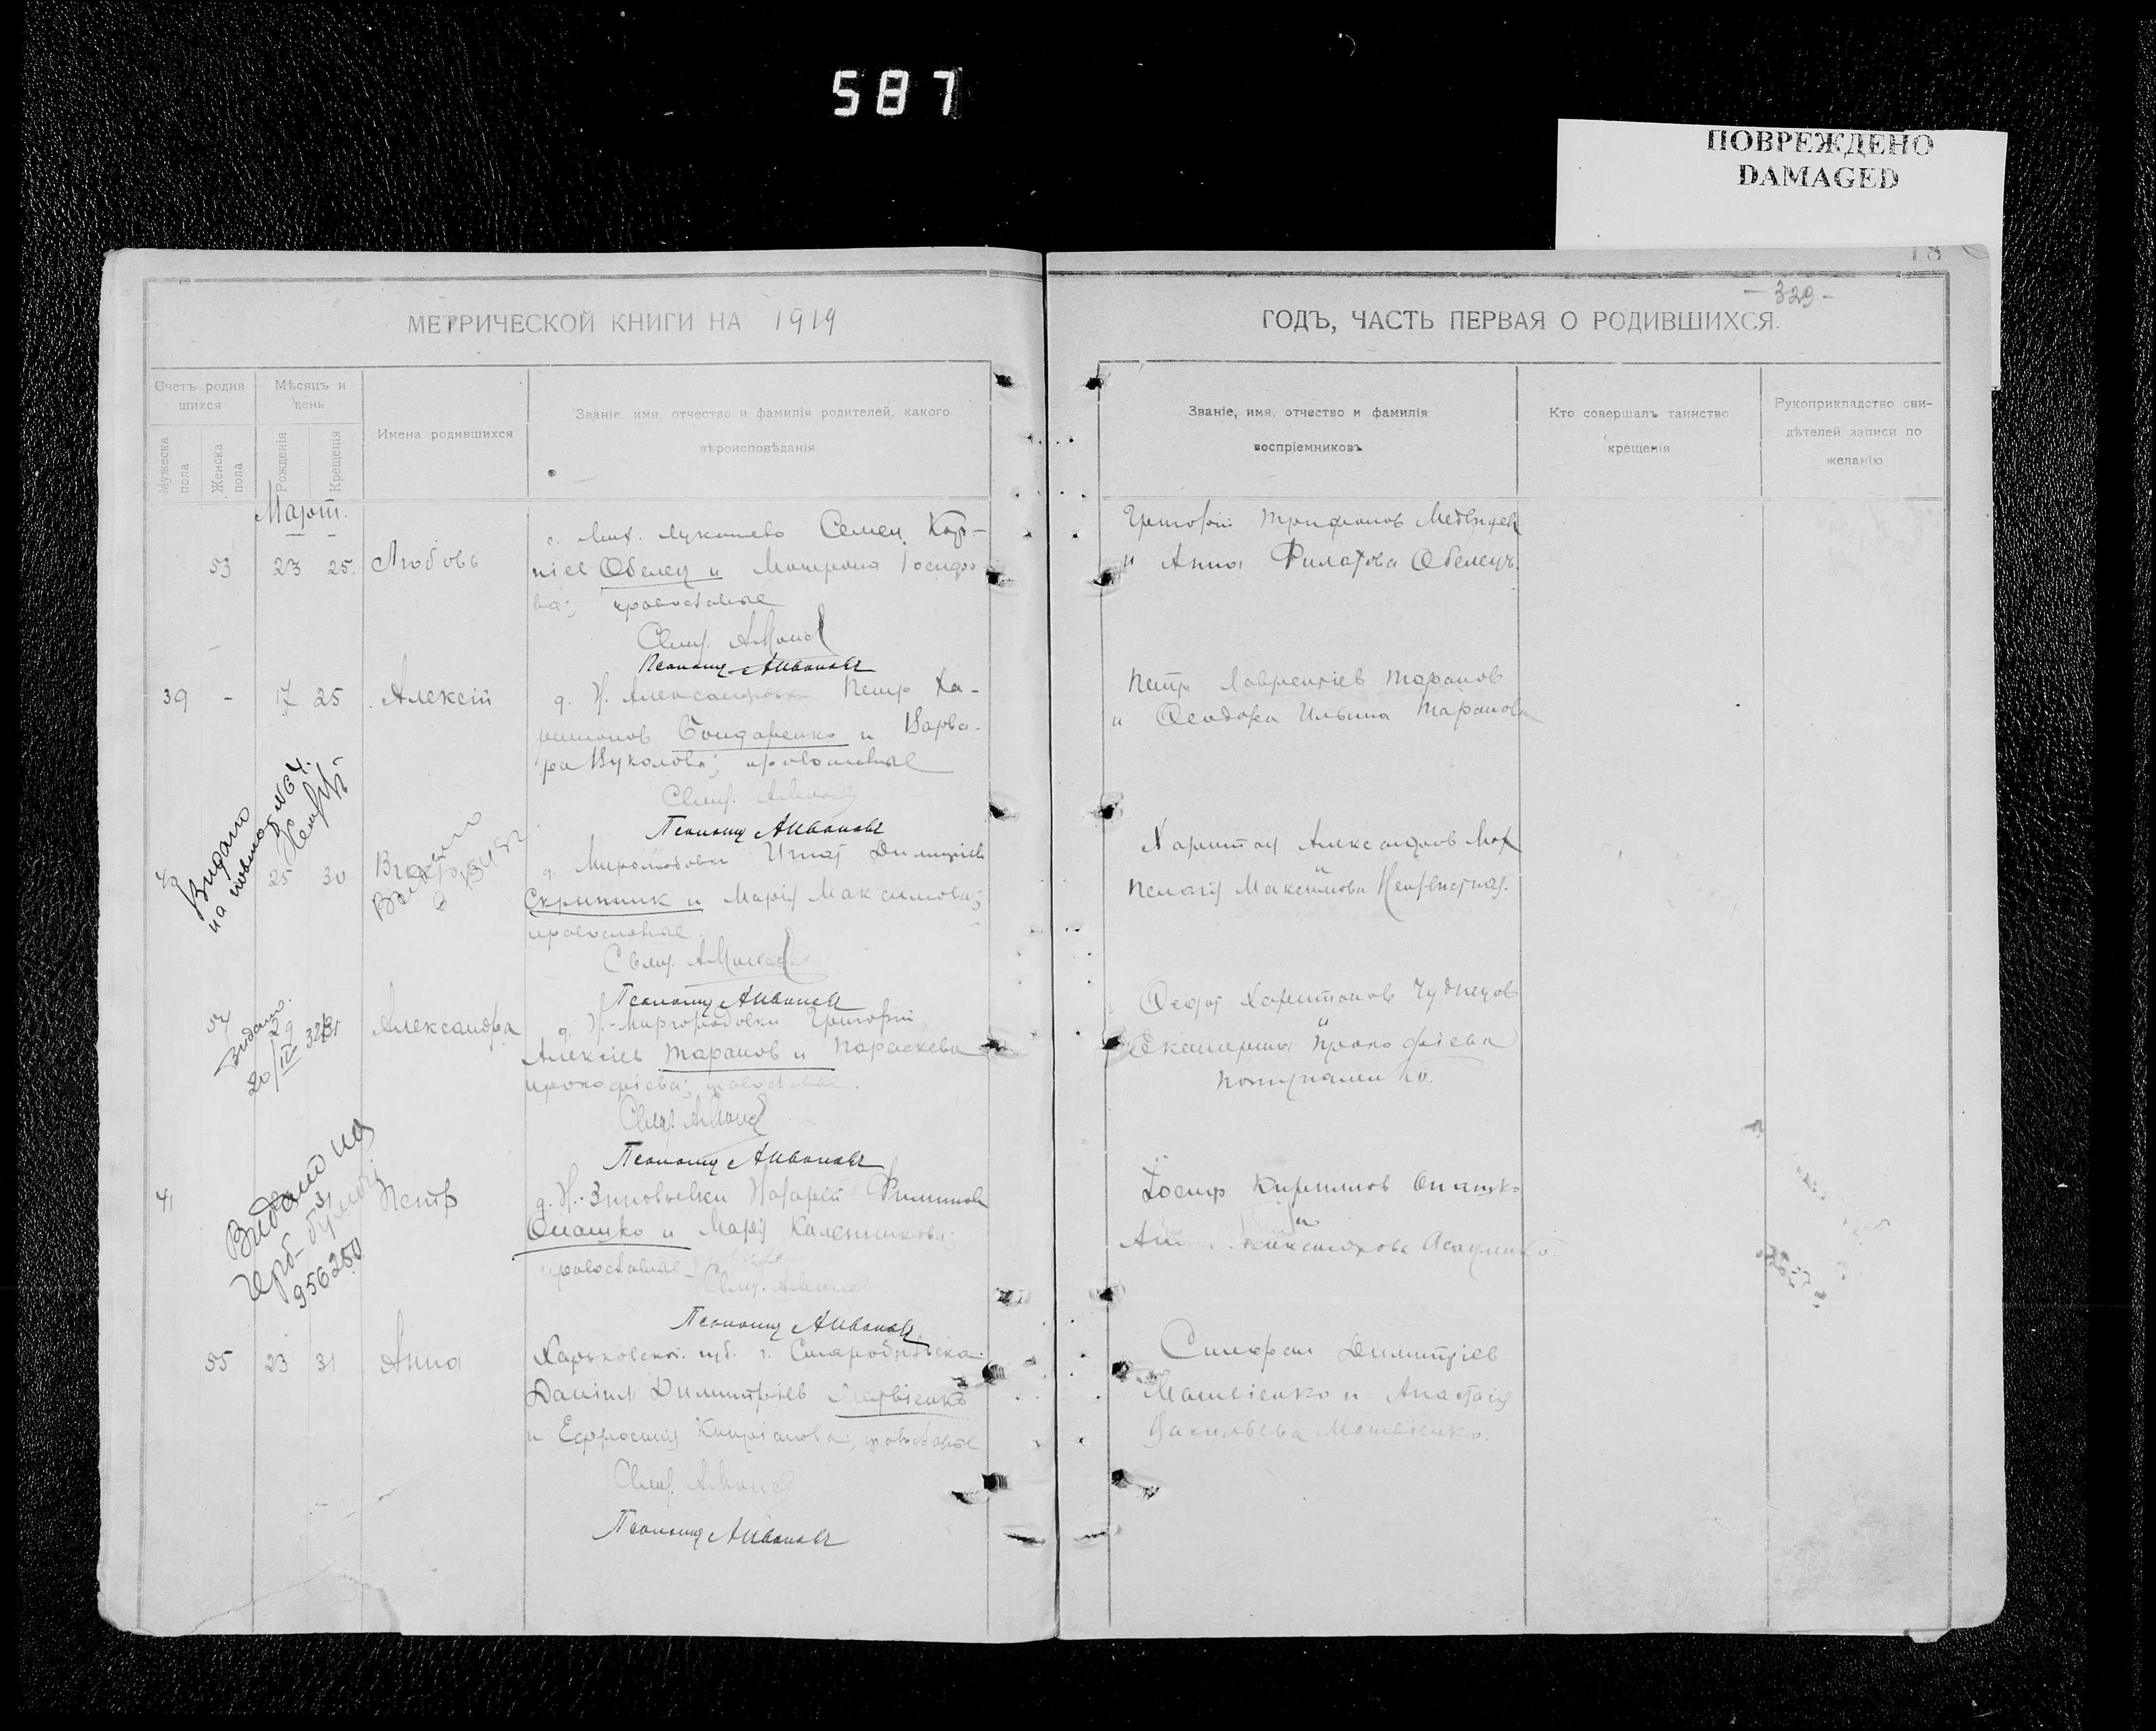 587
ПОВРЕЖДЕНО
DAMAGED
18
- 329 -
МЕТРИЧЕСКОЙ КНИГИ НА 1919
ГОДЪ, ЧАСТЬ ПЕРВАЯ О РОДИВШИХСЯ.
Счетъ родив
шихся
Мужеска пола
Женска пола
Мѣсяцъ и
день
Рожденія
Крещенія
Имена родившихся
Званіе, имя, отчество и фамилія родителей, какого
вѣроисповѣданія
Званіе, имя, отчество и фамилія
воспріемниковъ
Кто совершалъ таинство
крещенія
Рукоприкладство сви-
дѣтелей записи по
желанію
Март.
53 23 25. Любовь
Семен Кор-
ніев Обелец и Матрона Іосифо
ва; православные
Псаломщ АИвановъ
Григорій Трифонов Медведев
и Анна Филатова Обелецъ.
39 - 17 25 Алексій
д. Н. Александровка Петр Ха-
ритонов Бондаренко и Варва-
ра Вуколова; православные
Псаломщ АИвановъ
Петр Лаврентіев Таранов
и Ѳеодора Ильина Таранова
Видано
25 30
д. Миролюбовки Игнат Димитріев
Скрипник и Марія Максимова;
православные.
Псаломщ АИвановъ
Харитон Александров
и
Пелагія Максимова
54 29 31 Александра
Видано.
20/IV 32
д. Н.-Миргородовки Григорій
Алексіев Таранов и Параскева
Прокофіева; православные.
Псаломщ АИвановъ
Харитонов
и
Екатерина Прокофіева
41 31 Петр
Видано на
герб-бумазі
956250
д. Н.-Зиновьевки Назарій Филиппов
Опашко и Марія Каленникова;
православные
Псаломщ АИвановъ
Іосиф Кириллов Опашко
и
55 23 31 Анна
Харьковской губ. г. Старобѣльска
Даніил Димитріев Матвіенко
и Ефросинія Кипріанова, православные
Псаломщ АИвановъ
Стефан Димитріев
Матвіенко и Анастасія
Васильева Матвіенко.